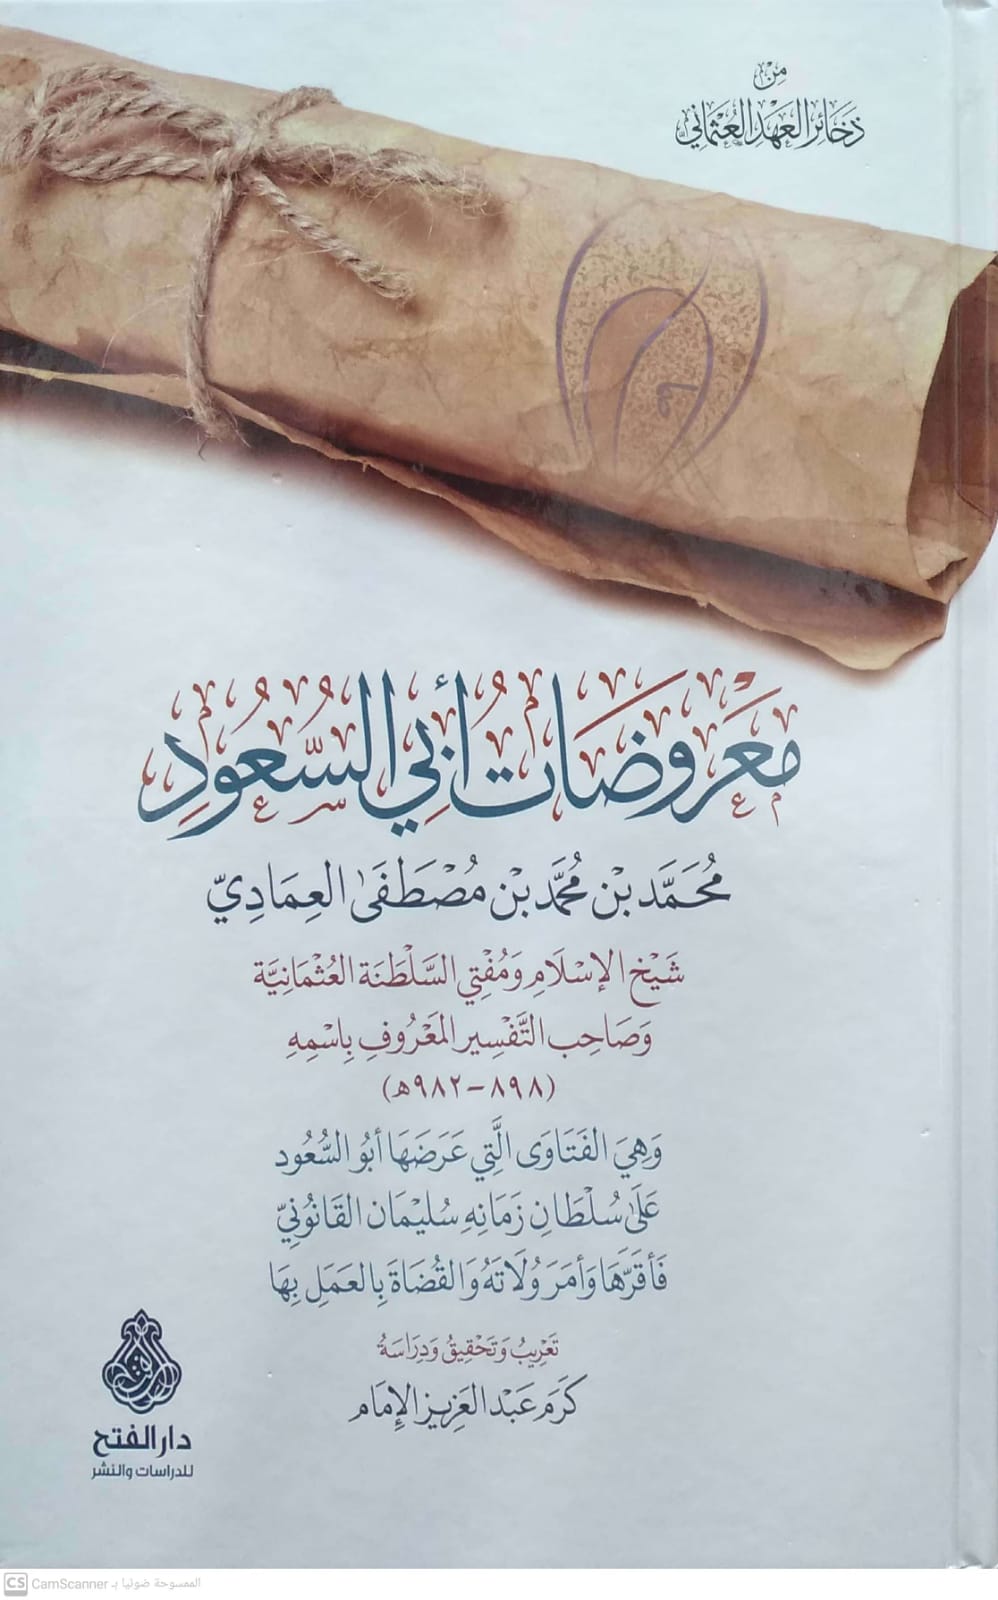 مِنْ
ذَخَائِرِ العَهْدِ العُثْمَانِيِّ
مَعْرُوضَاتُ أَبِي السُّعُودِ
مُحَمَّد بْن مُحَمَّد بْن مُصْطَفَى العِمَادِيّ
شَيْخ الإِسْلَامِ وَمُفْتِي السَّلْطَنَة العُثْمَانِيَّة
وَصَاحِب التَّفْسِير المَعْرُوفِ بِاسْمِهِ
(٨٩٨-٩٨٢هـ)
وَهِيَ الفَتَاوَى الَّتِي عَرَضَهَا أَبُو السُّعُود
عَلَى سُلْطَانِ زَمَانِهِ سُلَيْمَان القَانُونِيّ
فَأَقَرَّهَا وَأَمَرَ وُلَاتَهُ وَالقُضَاةَ بِالعَمَلِ بِهَا
تَعْرِيبُ وَتَحْقِيقُ وَدِرَاسَةُ
كَرَم عَبْد العَزِيز الإِمَام
دار الفتح
للدراسات والنشر
CS CamScanner الممسوحة ضوئيا بـ